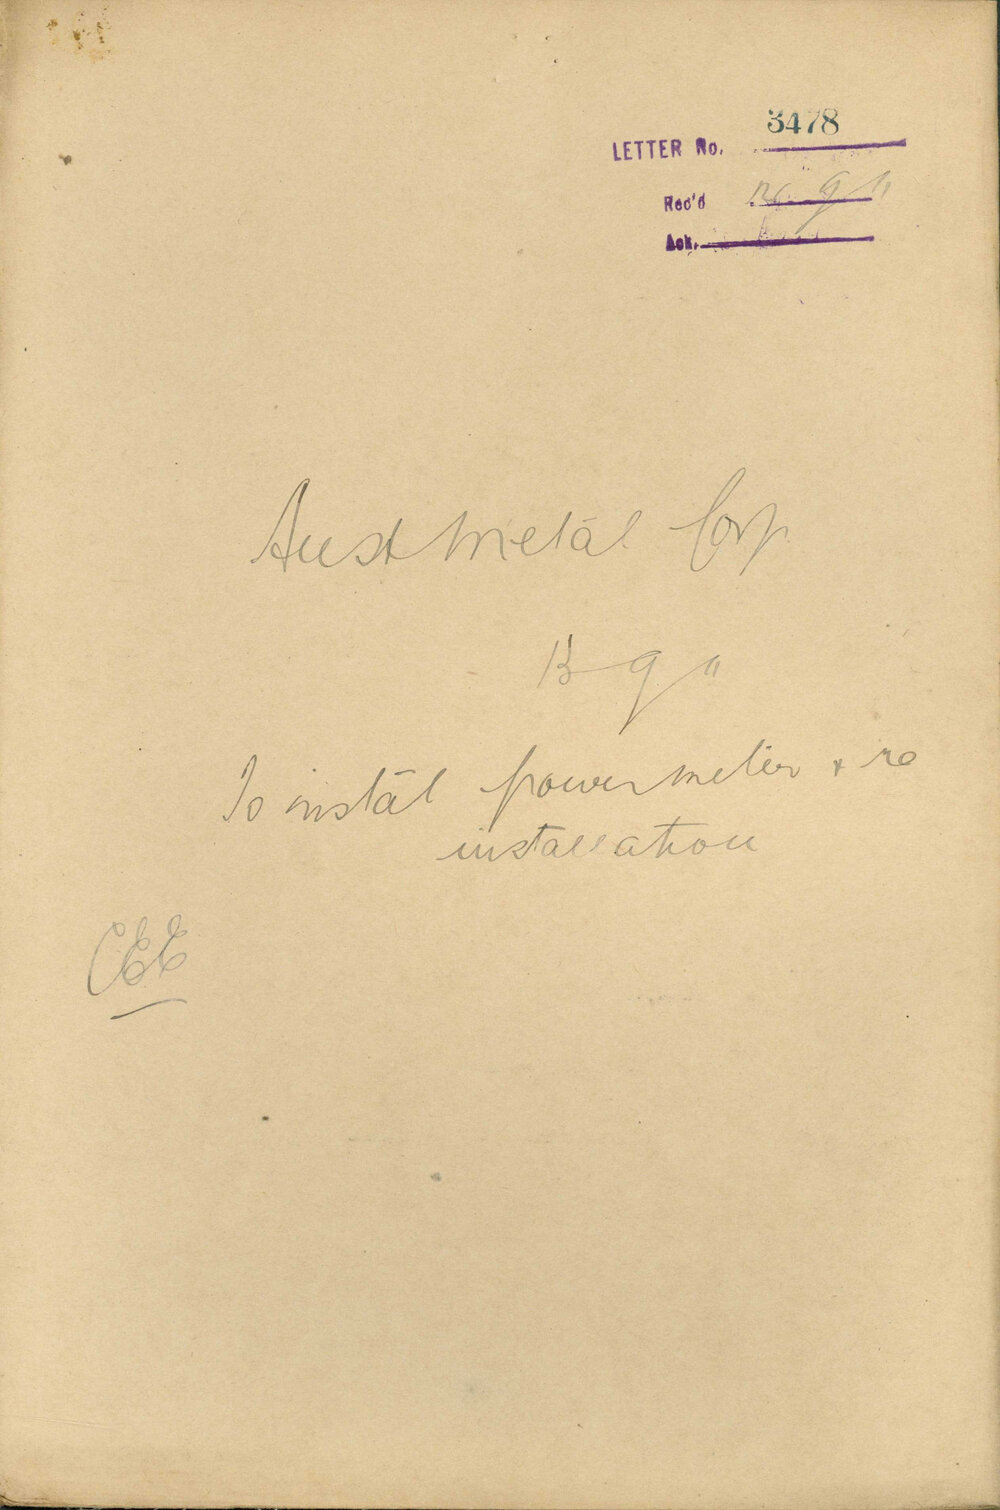 3478
LETTER No.
Rec'd 13 9 11
Ack.
Aust Metal Corp.
13 9 11
To instal power meter & re
installation
CEE